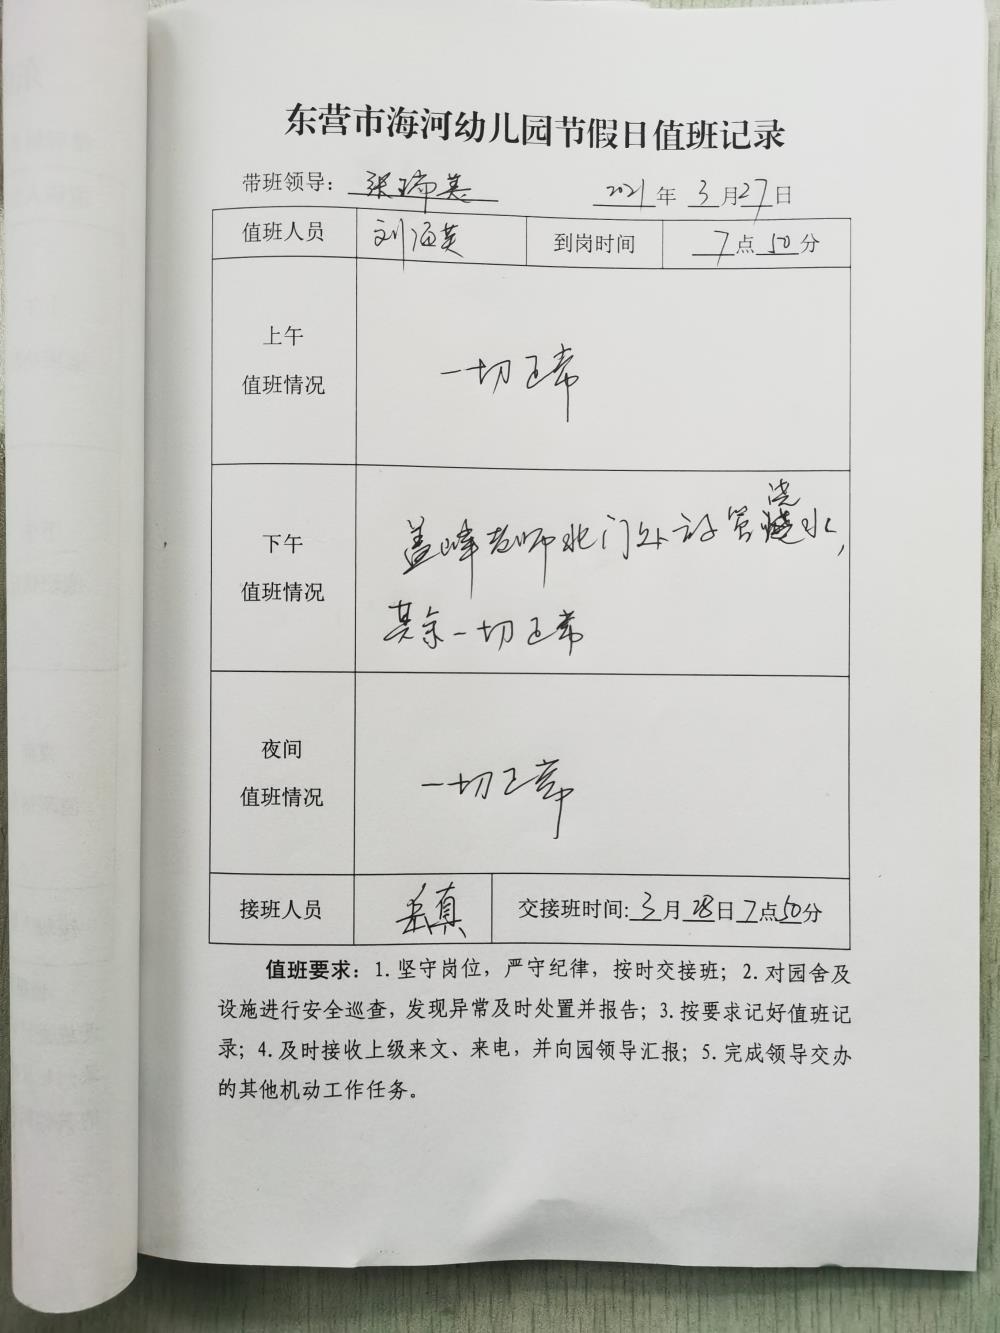 东营市海河幼儿园节假日值班记录
带班领导：张瑞英 2021年3月27日
值班人员 刘海英 到岗时间 7点50分
上午
值班情况
一切正常
下午
值班情况
盖峰老师北门处接管浇水，
其余一切正常
夜间
值班情况
一切正常
接班人员 岳真 交接班时间：3月28日7点50分
值班要求：1.坚守岗位，严守纪律，按时交接班；2.对园舍及
设施进行安全巡查，发现异常及时处置并报告；3.按要求记好值班记
录；4.及时接收上级来文、来电，并向园领导汇报；5.完成领导交办
的其他机动工作任务。